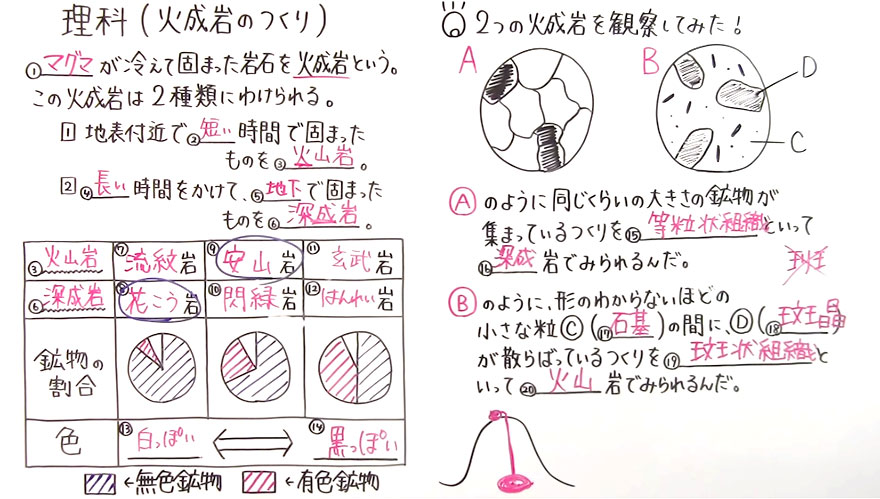 理科(火成岩のつくり)
①マグマが冷えて固まった岩石を火成岩という。
この火成岩は2種類にわけられる。
1 地表付近で②短い時間で固まった
ものを③火山岩。
2 ④長い時間をかけて、⑤地下で固まった
ものを⑥深成岩。
③火山岩 ⑦流紋岩 ⑨安山岩 ⑪玄武岩
⑥深成岩 ⑧花こう岩 ⑩閃緑岩 ⑫はんれい岩
鉱物の
割合
色 ⑬白っぽい ⑭黒っぽい
←無色鉱物 ←有色鉱物
2つの火成岩を観察してみた!
A B D
C
Ⓐのように同じくらいの大きさの鉱物が
集まっているつくりを⑮等粒状組織といって
⑯深成岩でみられるんだ。
Ⓑのように、形のわからないほどの
小さな粒Ⓒ(⑰石基)の間に、Ⓓ(⑱
が散らばっているつくりを⑲状組織と
いって⑳火山岩でみられるんだ。